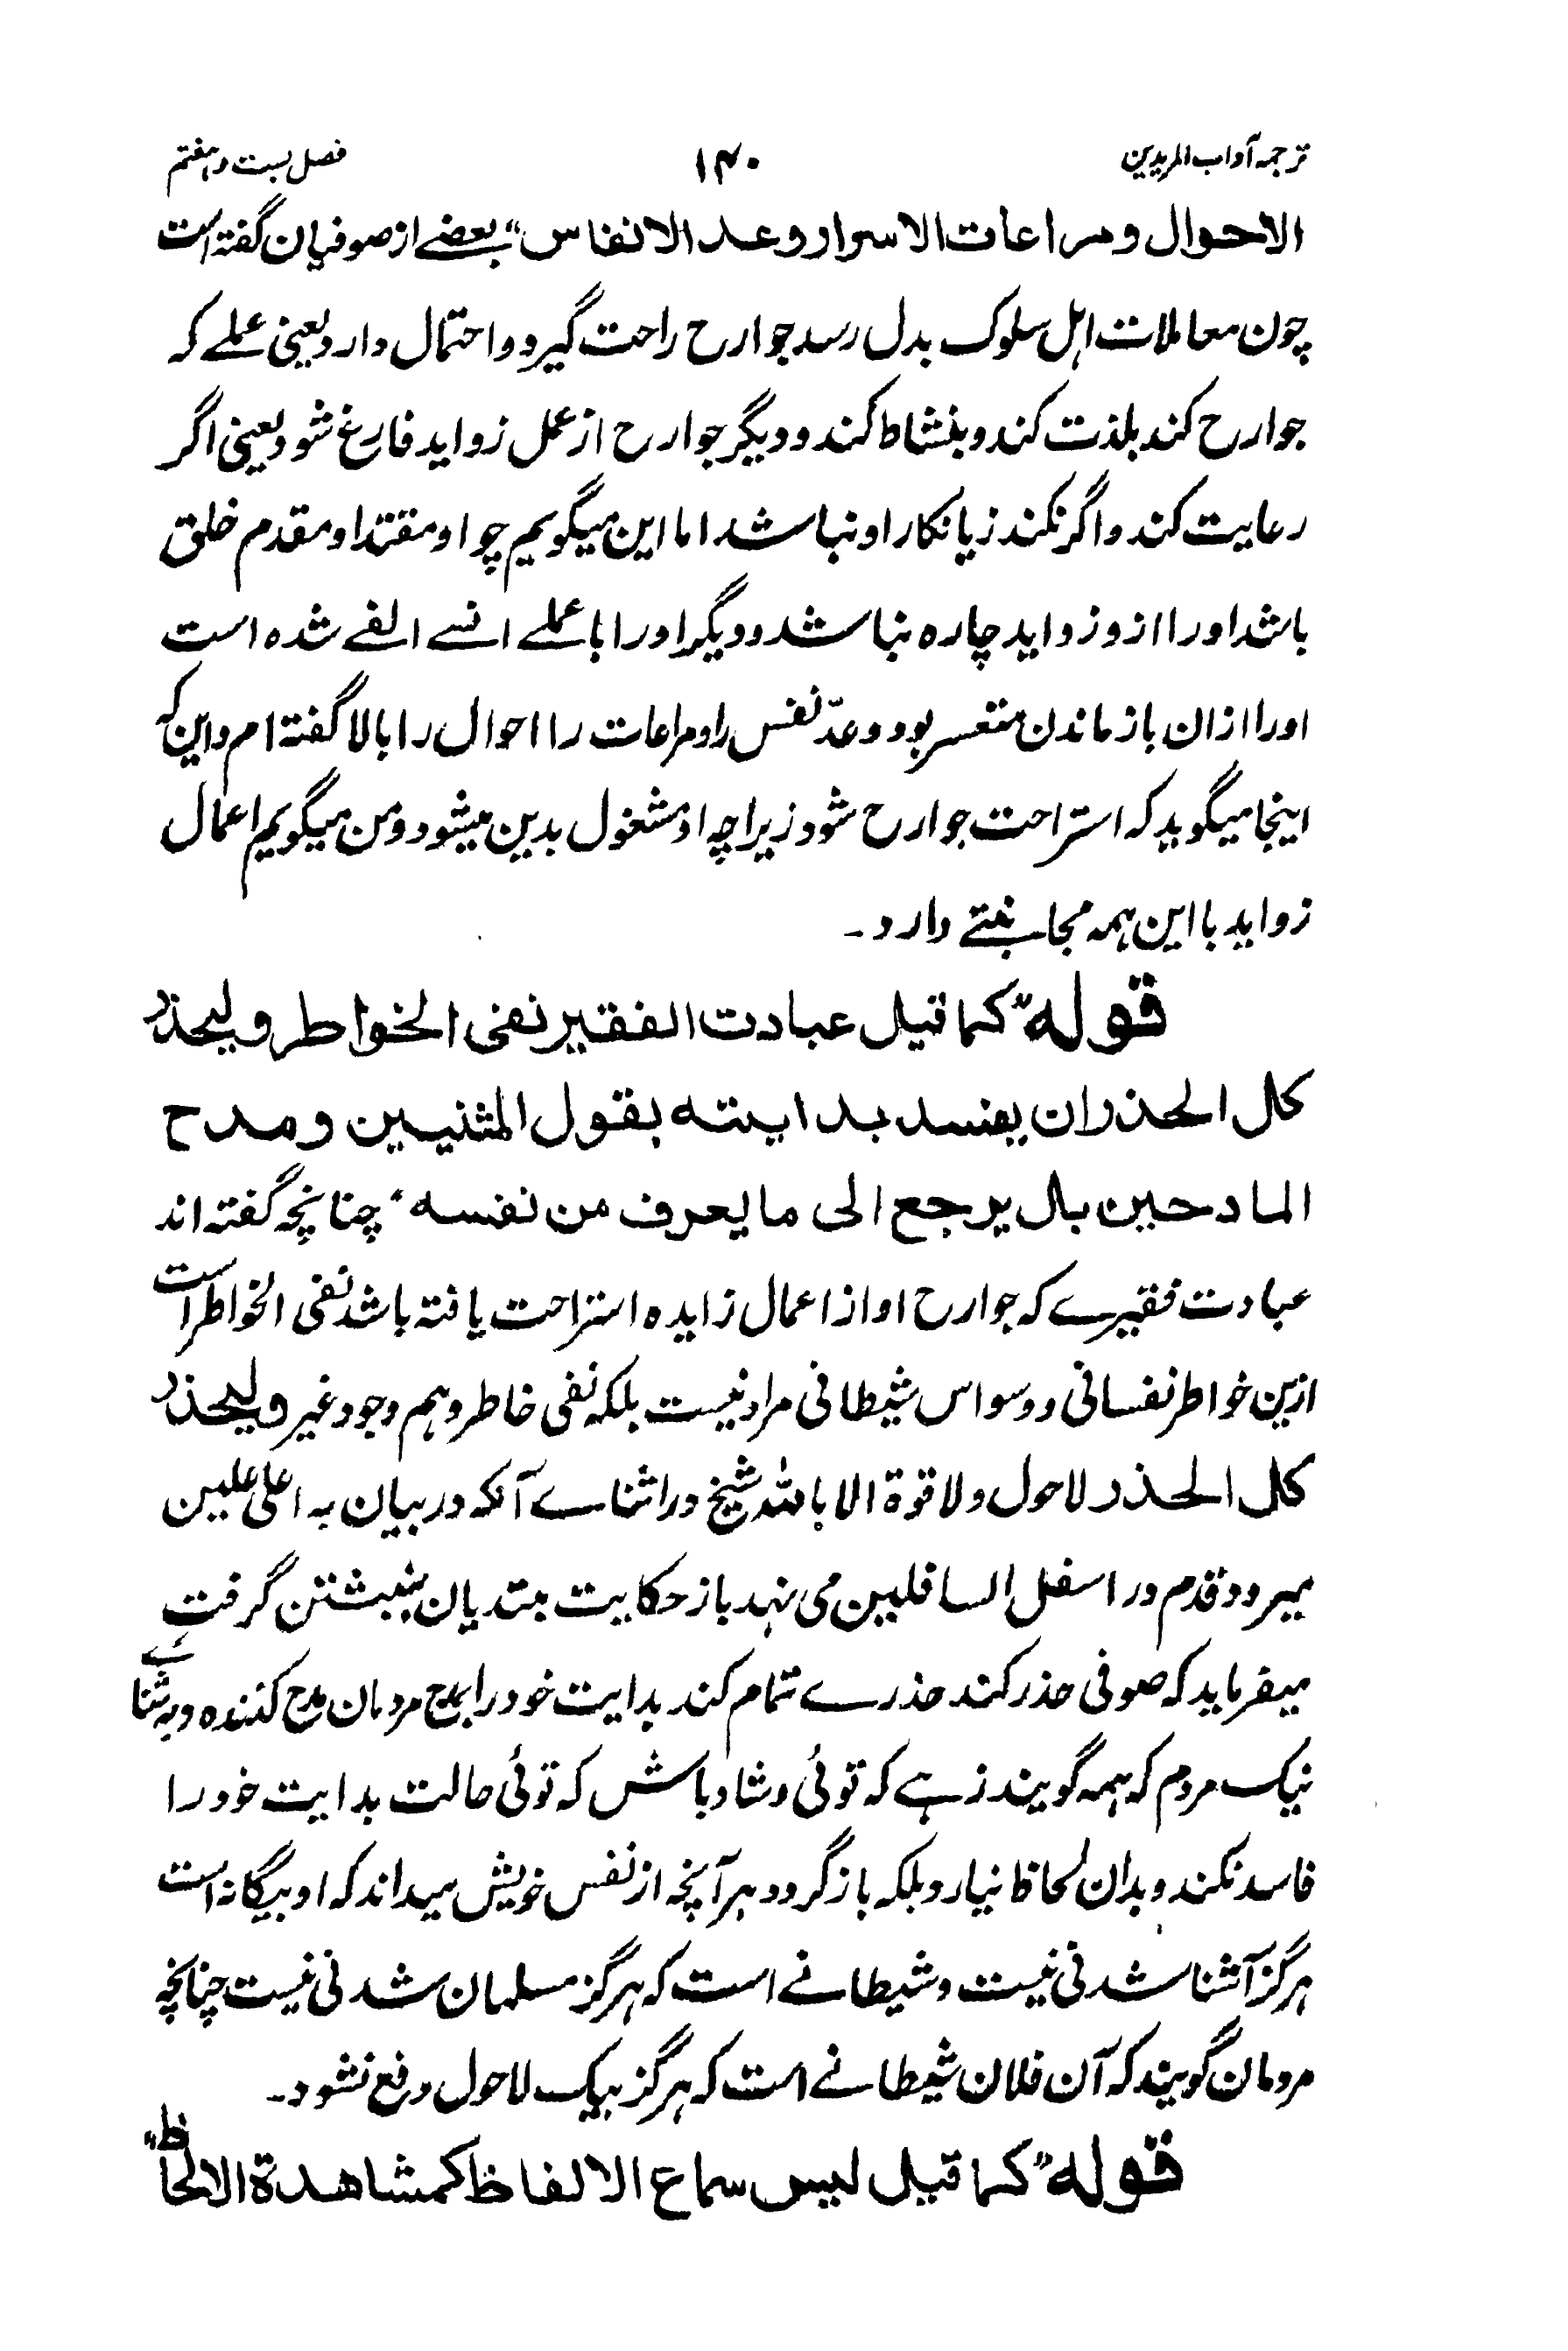 ترجمه آداب المریدین ۱۴۰ فصل بست و هفتم
الاحوال ومراعات الاسرار وعد الانفاس" بعضے از صوفیان گفته است
چون معاملات اہل سلوک بدل رسد جوارح راحت گیرد و احتمال دارد یعنی عملے کہ
جوارح کند بلذت کند و بنشاط کند و دیگر جوارح از عمل زواید فارغ شود یعنی اگر
رعایت کند و اگر نکند زیانکار او نباشد اما این میگویم چو او مقتدا و مقدم خلق
باشد او را از و زواید چاره نباشد و دیگر او را با عملے انسے الفے شده است
او را ازان باز ماندن متعسر بود و عدّ نفس را و مراعات را احوال را بالا گفته ام و این کہ
اینجا میگوید کہ استراحت جوارح شود زیراچہ او مشغول بدین میشود و من میگویم اعمال
زواید با این ہمہ مجانبتے دارد۔
قوله "کما قیل عبادت الفقیر نفی الخواطر ولیحذر
کل الحذر ان یفسد بدایته بقول المثنیین ومدح
المادحین بل یرجع الی ما یعرف من نفسه" چنانچہ گفته اند
عبادت فقیرے کہ جوارح او از اعمال زایده استراحت یافته باشد نفی الخواطر است
ازین خواطر نفسانی و وسواس شیطانی مراد نیست بلکہ نفی خاطر و ہم وجود غیر ولیحذر
کل الحذر لاحول ولا قوة الا بالله شیخ در اثناے آنکہ در بیان بہ اعلی علیین
میرود قدم در اسفل السافلین می نہد باز حکایت مبتدیان نبشتن گرفت
میفرماید کہ صوفی حذر کند حذرے تمام کند بدایت خود را بمدح مردمان مدح کننده و بہ ثناے
نیک مردم کہ ہمہ گویند زہے کہ توئی و شاد باش کہ توئی حالت بدایت خود را
فاسد نکند و بدان لحاظ نیارد بلکہ باز گردد ہر آنچہ از نفس خویش میداند کہ او بیگانہ است
ہرگز آشنا شدنی نیست و شیطانے است کہ ہرگز مسلمان شدنی نیست چنانچہ
مردمان گویند کہ آن فلان شیطانے است کہ ہرگز بیک لاحول دفع نشود۔
قوله "کما قیل لیس سماع الالفاظ کمشاهدة الالحاظ"